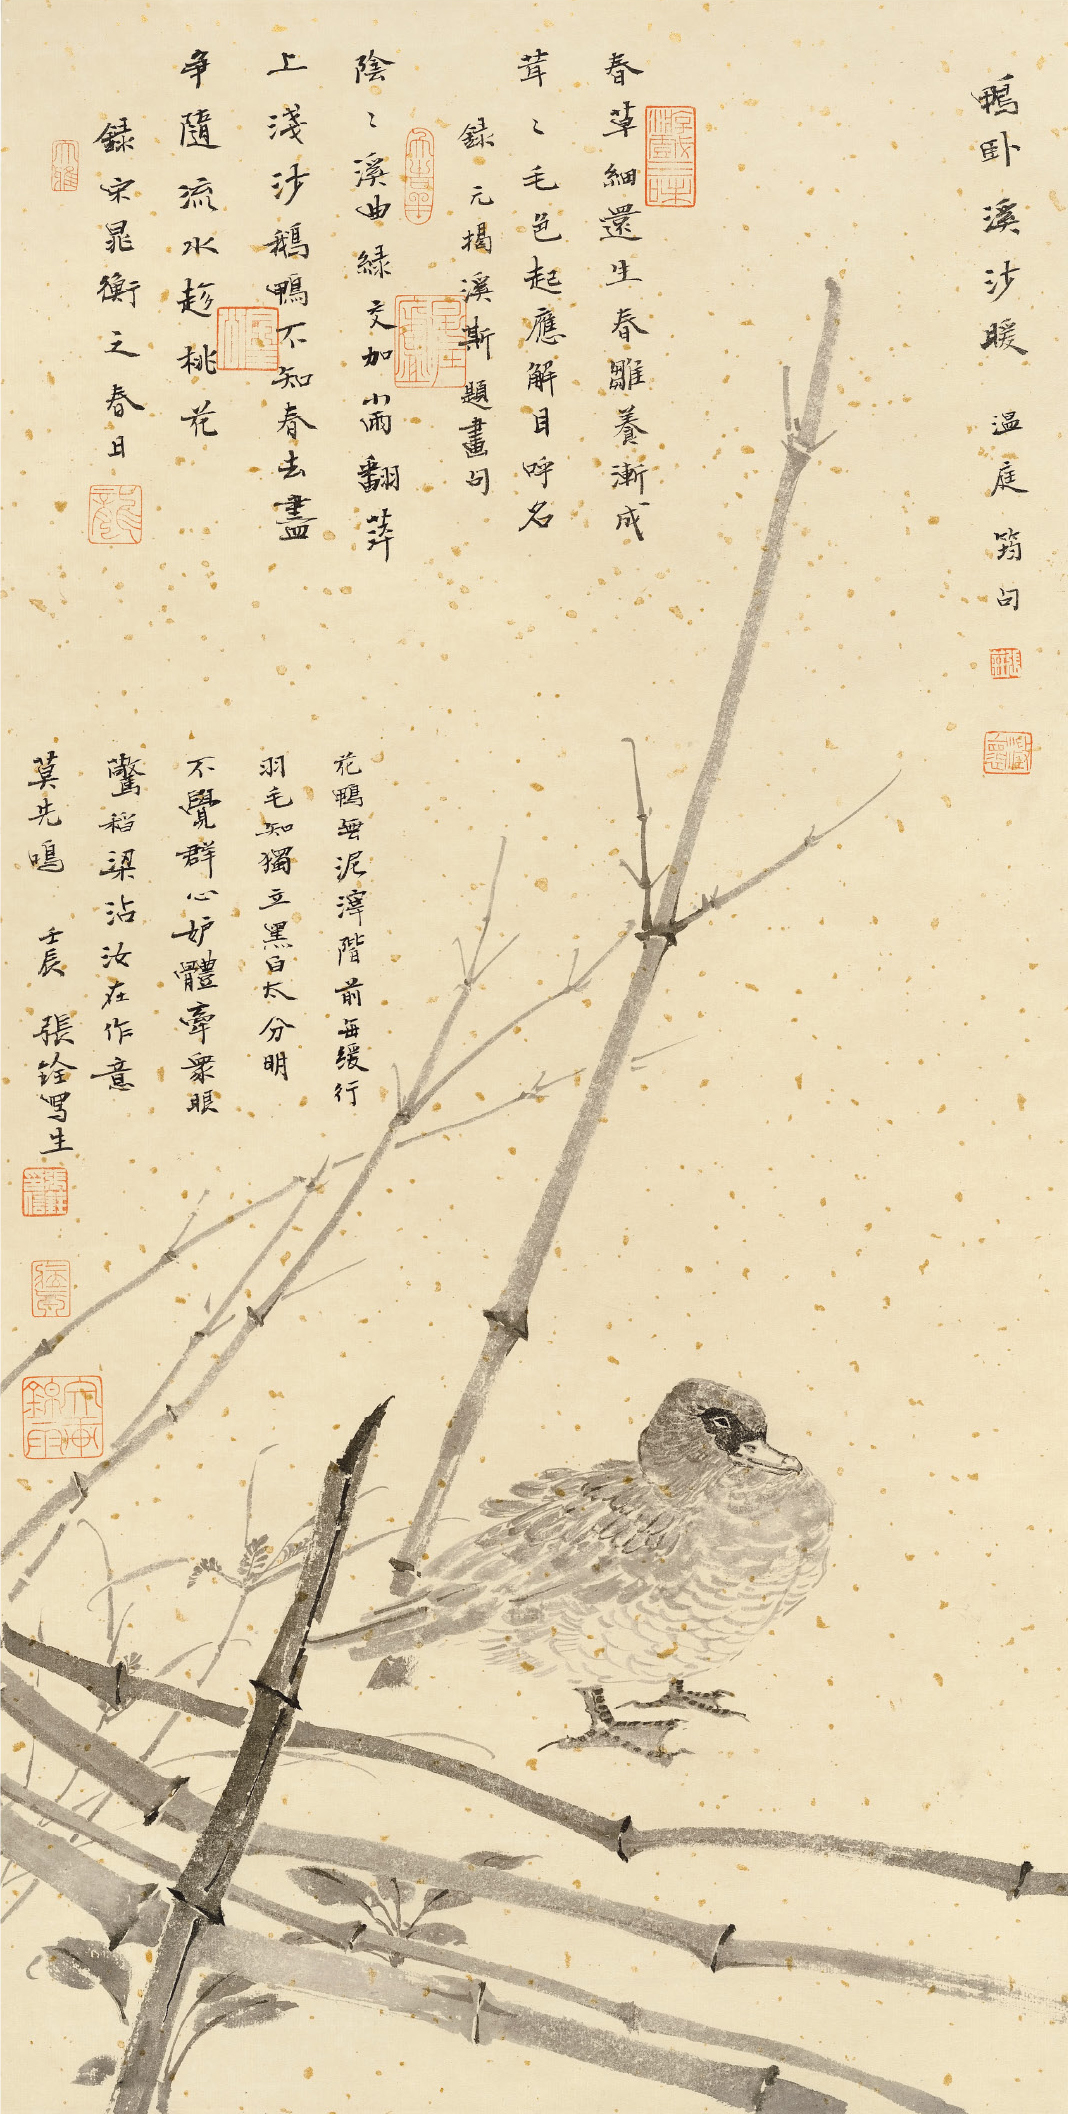 鴨卧溪沙暖 温庭筠句
春草細還生春雛養漸成
茸〻毛色起應解自呼名
録元揭溪斯題畫句
陰〻溪曲緑交加小雨翻萍
上淺沙鵝鴨不知春去盡
争隨流水趁桃花
録宋晁衡之春日
花鴨無泥滓階前每缓行
羽毛知獨立黑白太分明
不覺群心妒體牽衆眼
驚稻梁沾汝在作意
莫先鳴 壬辰 張銓寫生